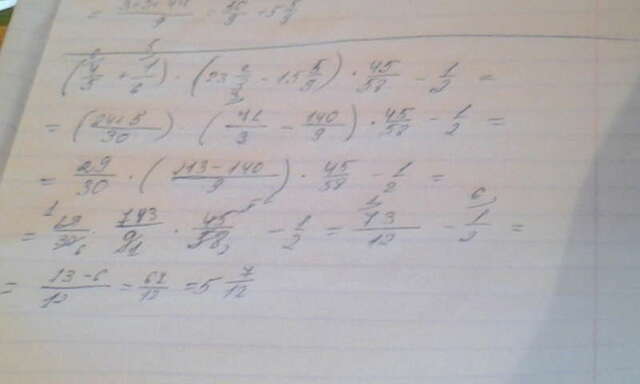 = 9 = 9 = 5
(4/5 + 1/6) · (23 2/3 - 15 5/9) · 45/58 - 1/2 =
= (24+5/30) (71/3 - 140/9) · 45/58 - 1/2 =
= 29/30 · (213-140/9) · 45/58 - 1/2 =
= 29/30 · 9 · 45/58 - 1/2 = 73/12 - 1/2 =
= 73-6/12 = 67/12 = 5 7/12